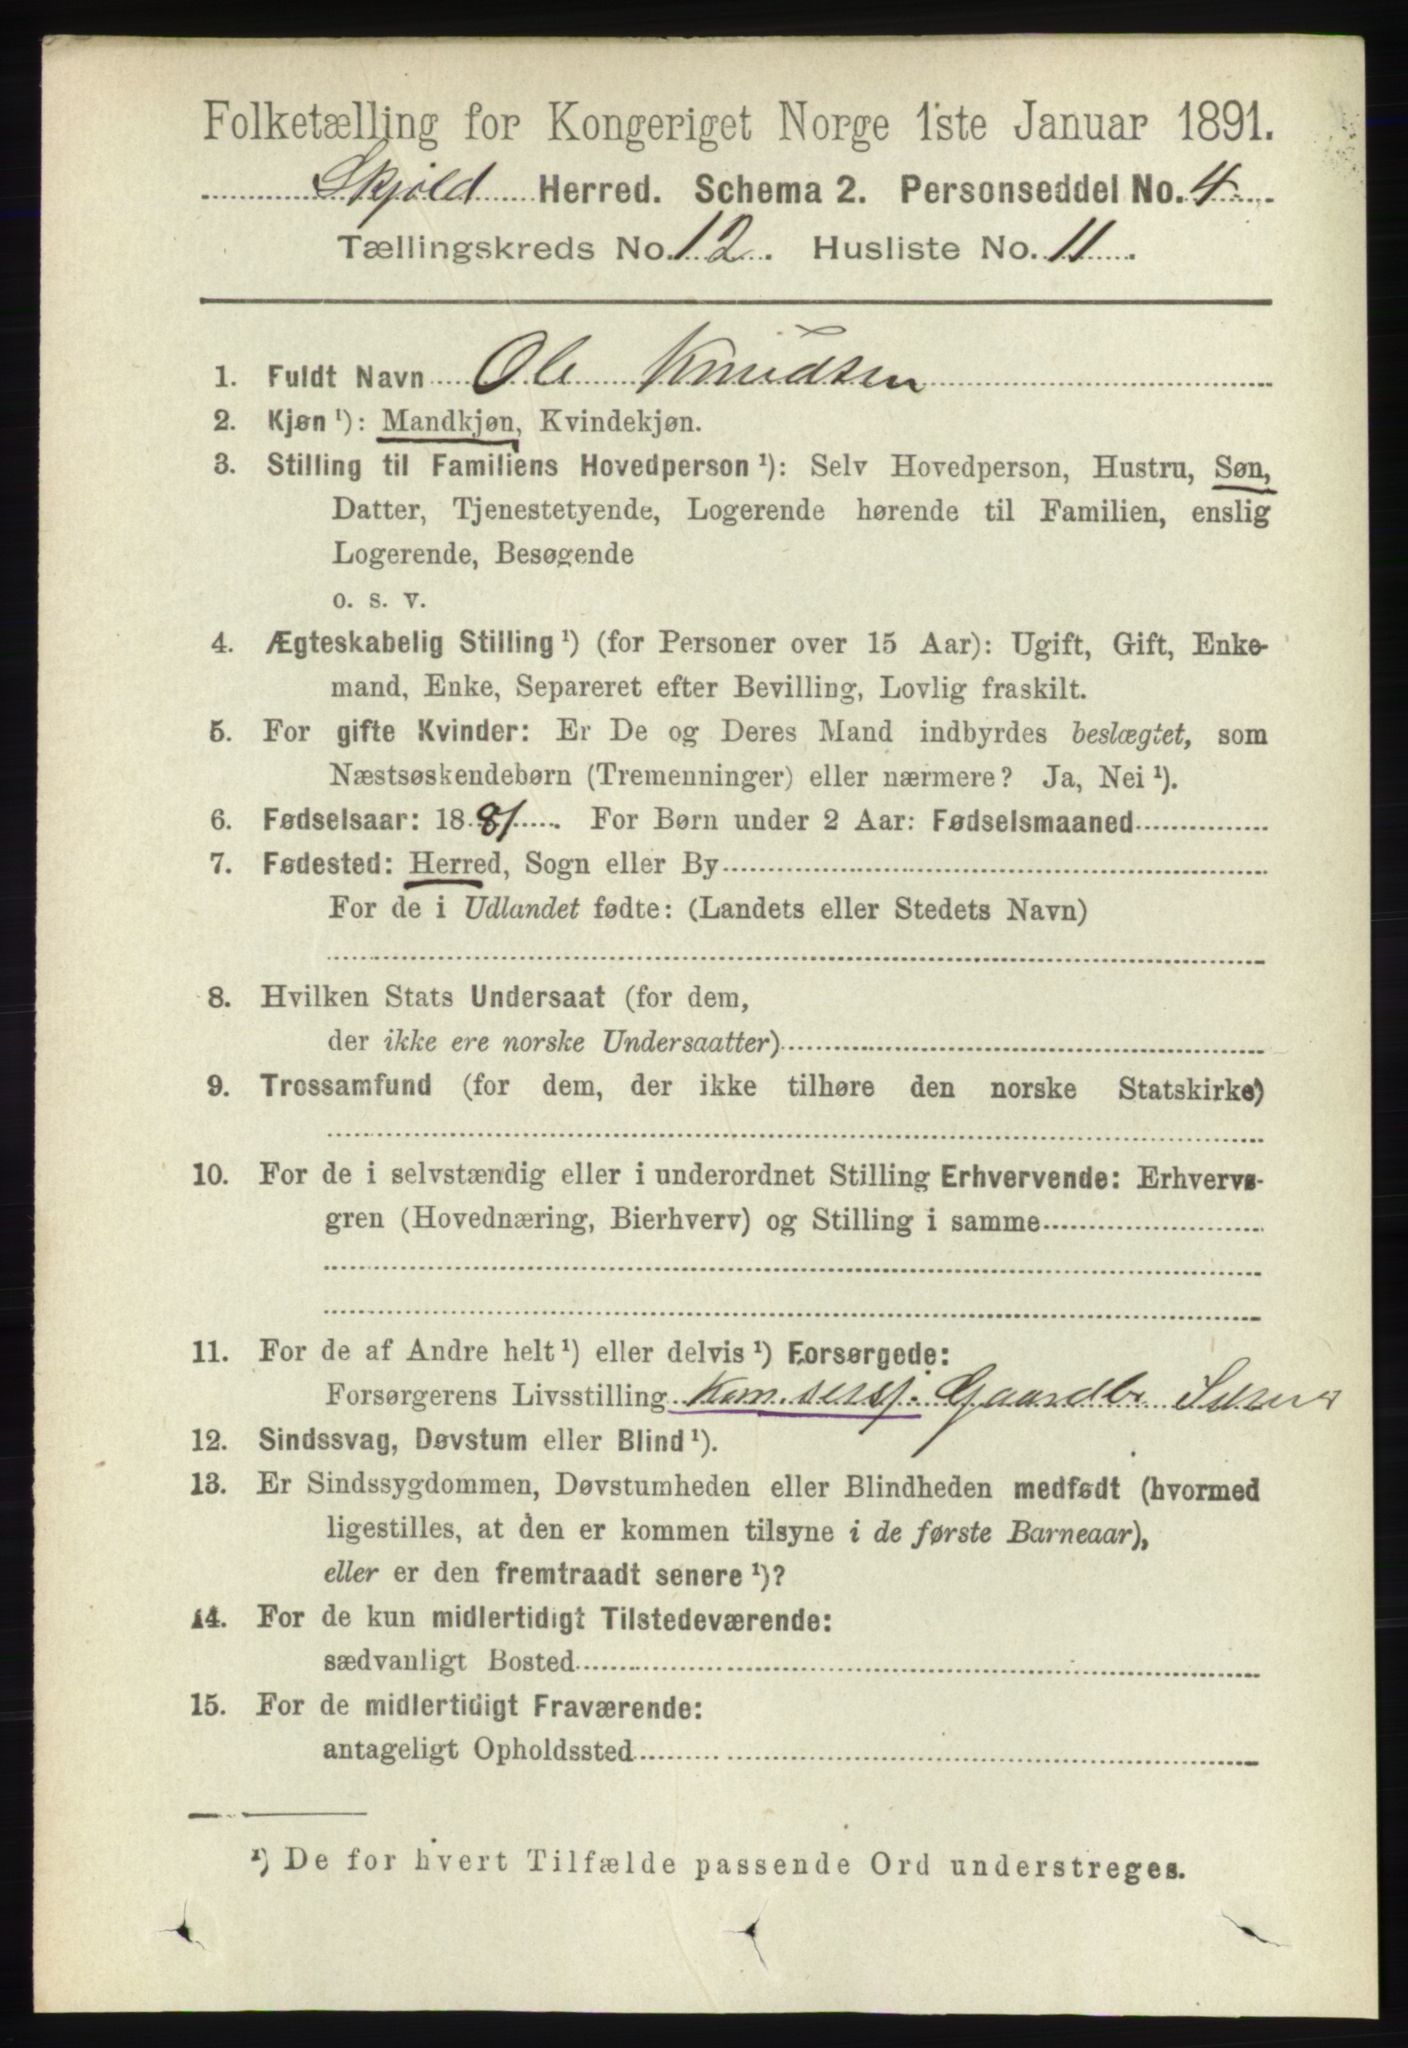 Folketælling for Kongeriget Norge 1ste Januar 1891.
Skjold Herred. Schema 2. Personseddel No. 4
Tællingskreds No. 12. Husliste No. 11
1. Fuldt Navn Ole Knudsen
2. Kjøn ¹): Mandkjøn, Kvindekjøn.
3. Stilling til Familiens Hovedperson ¹): Selv Hovedperson, Hustru, Søn,
Datter, Tjenestetyende, Logerende hørende til Familien, enslig
Logerende, Besøgende
o. s. v.
4. Ægteskabelig Stilling ¹) (for Personer over 15 Aar): Ugift, Gift, Enke-
mand, Enke, Separeret efter Bevilling, Lovlig fraskilt.
5. For gifte Kvinder: Er De og Deres Mand indbyrdes beslægtet, som
Næstsøskendebørn (Tremenninger) eller nærmere? Ja, Nei ¹).
6. Fødselsaar: 1881. For Børn under 2 Aar: Fødselsmaaned
7. Fødested: Herred, Sogn eller By
For de i Udlandet fødte: (Landets eller Stedets Navn)
8. Hvilken Stats Undersaat (for dem,
der ikke ere norske Undersaatter)
9. Trossamfund (for dem, der ikke tilhøre den norske Statskirke)
10. For de i selvstændig eller i underordnet Stilling Erhvervende: Erhvervs-
gren (Hovednæring, Bierhverv) og Stilling i samme
11. For de af Andre helt ¹) eller delvis ¹) Forsørgede:
Forsørgerens Livsstilling Kom. sersj. Gaardbr
12. Sindssvag, Døvstum eller Blind ¹).
13. Er Sindssygdommen, Døvstumheden eller Blindheden medfødt (hvormed
ligestilles, at den er kommen tilsyne i de første Barneaar),
eller er den fremtraadt senere ¹)?
14. For de kun midlertidigt Tilstedeværende:
sædvanligt Bosted
15. For de midlertidigt Fraværende:
antageligt Opholdssted
¹) De for hvert Tilfælde passende Ord understreges.